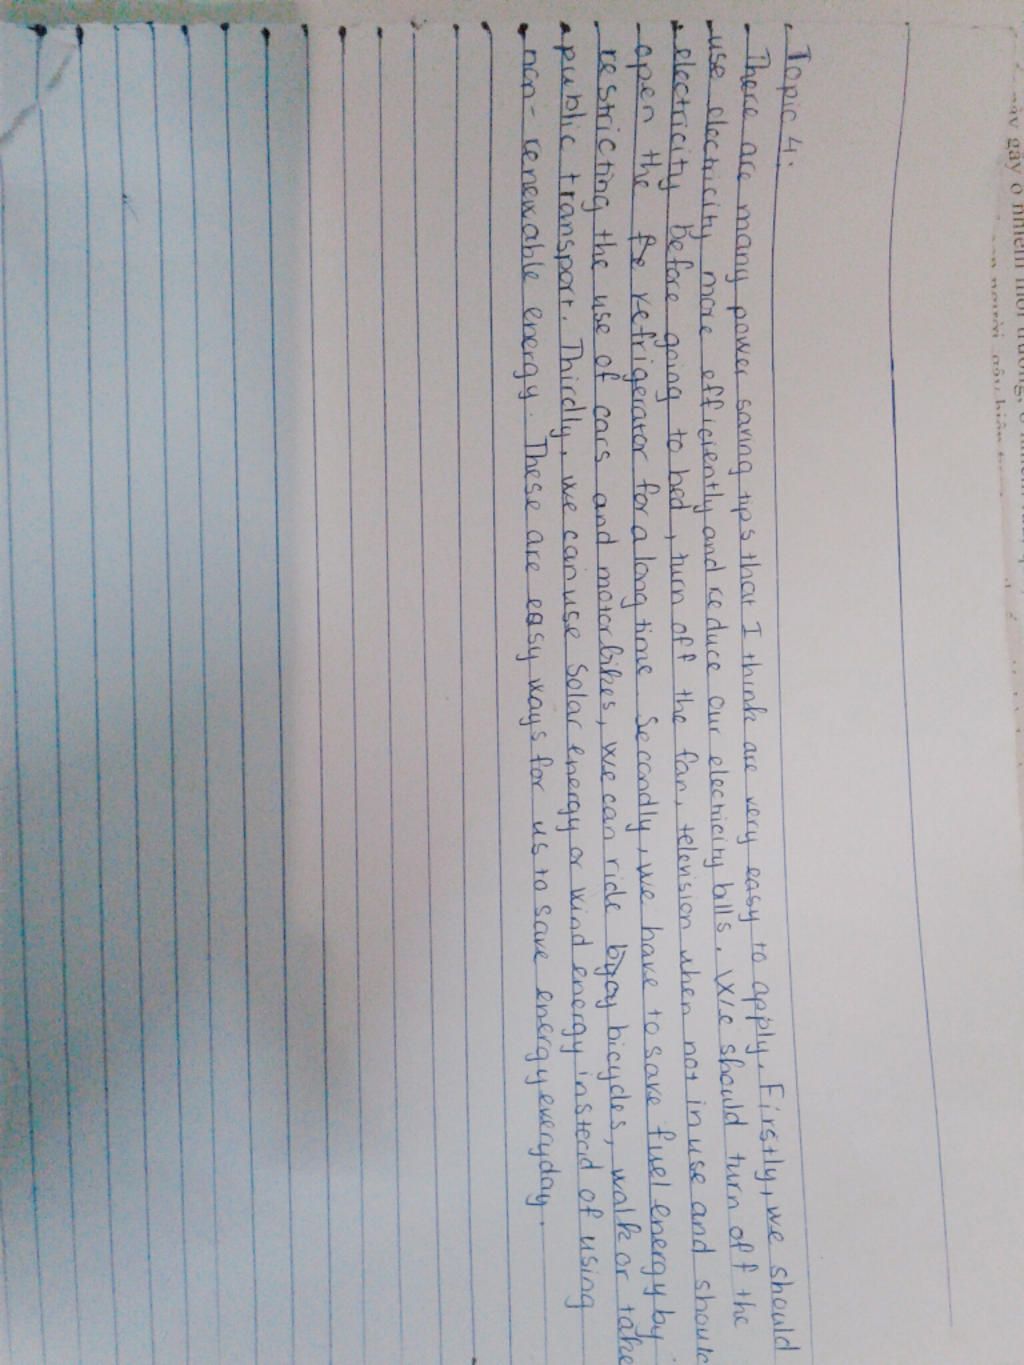 Topic 4:
There are many power saving tips that I think are very easy to apply. Firstly, we should
use electricity more efficiently and reduce our electricity bills. We should turn off the
electricity before going to bed, turn off the fan, television when not in use and should
open the refrigerator for a long time. Secondly, we have to save fuel energy by
restricting the use of cars and motorbikes, we can ride bicycles, walk or take
public transport. Thirdly, we can use Solar energy or wind energy instead of using
non-renewable energy. These are easy ways for us to save energy everyday.
gây ô nhiễm môi trường,